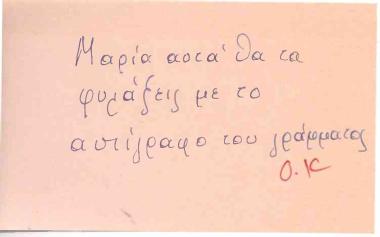 Μαρία αυτά θα τα
φυλάξεις με το
αντίγραφο του γράμματος
O.K